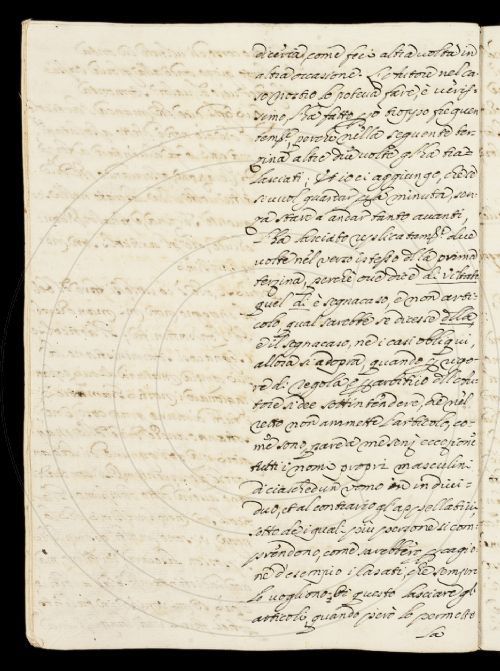 di certa, come fei altra volta in
altra occasione. Le tutore nel ca-
so nostro lo poteva fare, è veris-
simo, l'ha fatto po troppo frequen-
temte, perchè nella seguente ter-
zina altre due volte gl'ha tra-
lasciati; Et io ci aggiungo, che se
si vuol guardar la minuta, sen-
za stare a andar tanto avanti,
l'ha lasciato replicatamte dice
volte nel verso istesso dlla prima
terzina, perchè ove dice di vibrate
quel di è segnacaso, e non arti-
colo, qual sarebbe se dicesse dlla
e il segnacaso, ne i casi obliqui,
allora si adopra, quando p vigo-
re di regola
tore si dee sottintendere, che nel
retto non ammette l'articolo, co-
me sono, pare a me senz' eccezione
tutti i nomi propri masculini
di ciaschedun uomo in indivi-
duo, et al contrario gl'appellativi,
sotto de i quali più persone si com-
prendono, come sarebbero p cagio-
ne d'esempio i lasati, che sempre
lo vogliono; Di questo lasciare gl'
articoli, quando però lo permette
la